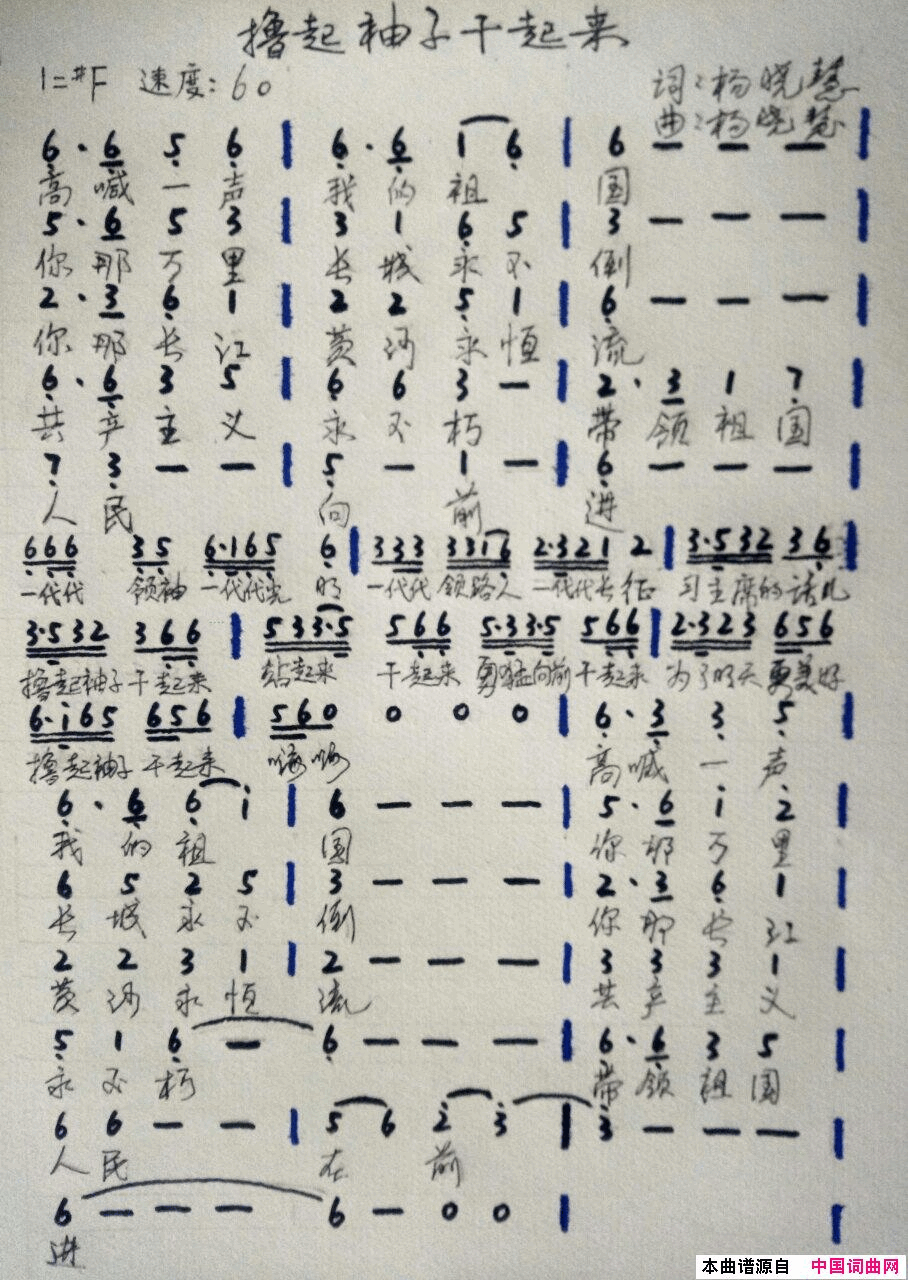 撸起袖子干起来
1=#F 速度:60 词:杨晓慧
曲:杨晓慧
6· 6 5 6 | 6· 6 1 6 | 6 — — — |
高喊一声 我的祖 国
5· 6 5 3 3 1 6 5 3 — — —
你那万里 长城永不 倒
2· 3 6 1 | 2 2 5 1 | 6 — — — |
你那长江 黄河永恒 流
6· 6 3 5 | 6 6 3 — | 2· 3 1 7 |
共产主义 永不朽 带领祖国
7 3 — — | 5 — 1 — | 6 — — — |
人民 向前 进
666 35 6·165 6 | 333 3316 2·321 2 | 3·532 36 |
一代代 领袖 一代代光 明 一代代 领路人 一代代长征 习主席的话儿
3·532 366 | 533·5 566 5·33·5 566 | 2·323 656
撸起袖子干起来 站起来 干起来 勇猛向前干起来 为了明天更美好
6·165 656 | 560 0 0 0 | 6· 3 3 5 |
撸起袖子 干起来 嗨嗨 高喊一声
6· 6 6 1 | 6 — — — | 5· 6 1 2 |
我的祖 国 你那万里
6 5 2 5 | 3 — — — | 2· 3 6 1 |
长城永不 倒 你那长江
2 2 3 1 | 2 — — — | 3 3 3 1 |
黄河永恒 流 共产主义
5 1 6 — 6 — — — | 6· 6 3 5 |
永不朽 带领祖国
6 6 — — | 5 6 2 3 | 3 — — — |
人民 在前
6 — — — 6 — 0 0 | |
进
本曲谱源自 中国词曲网